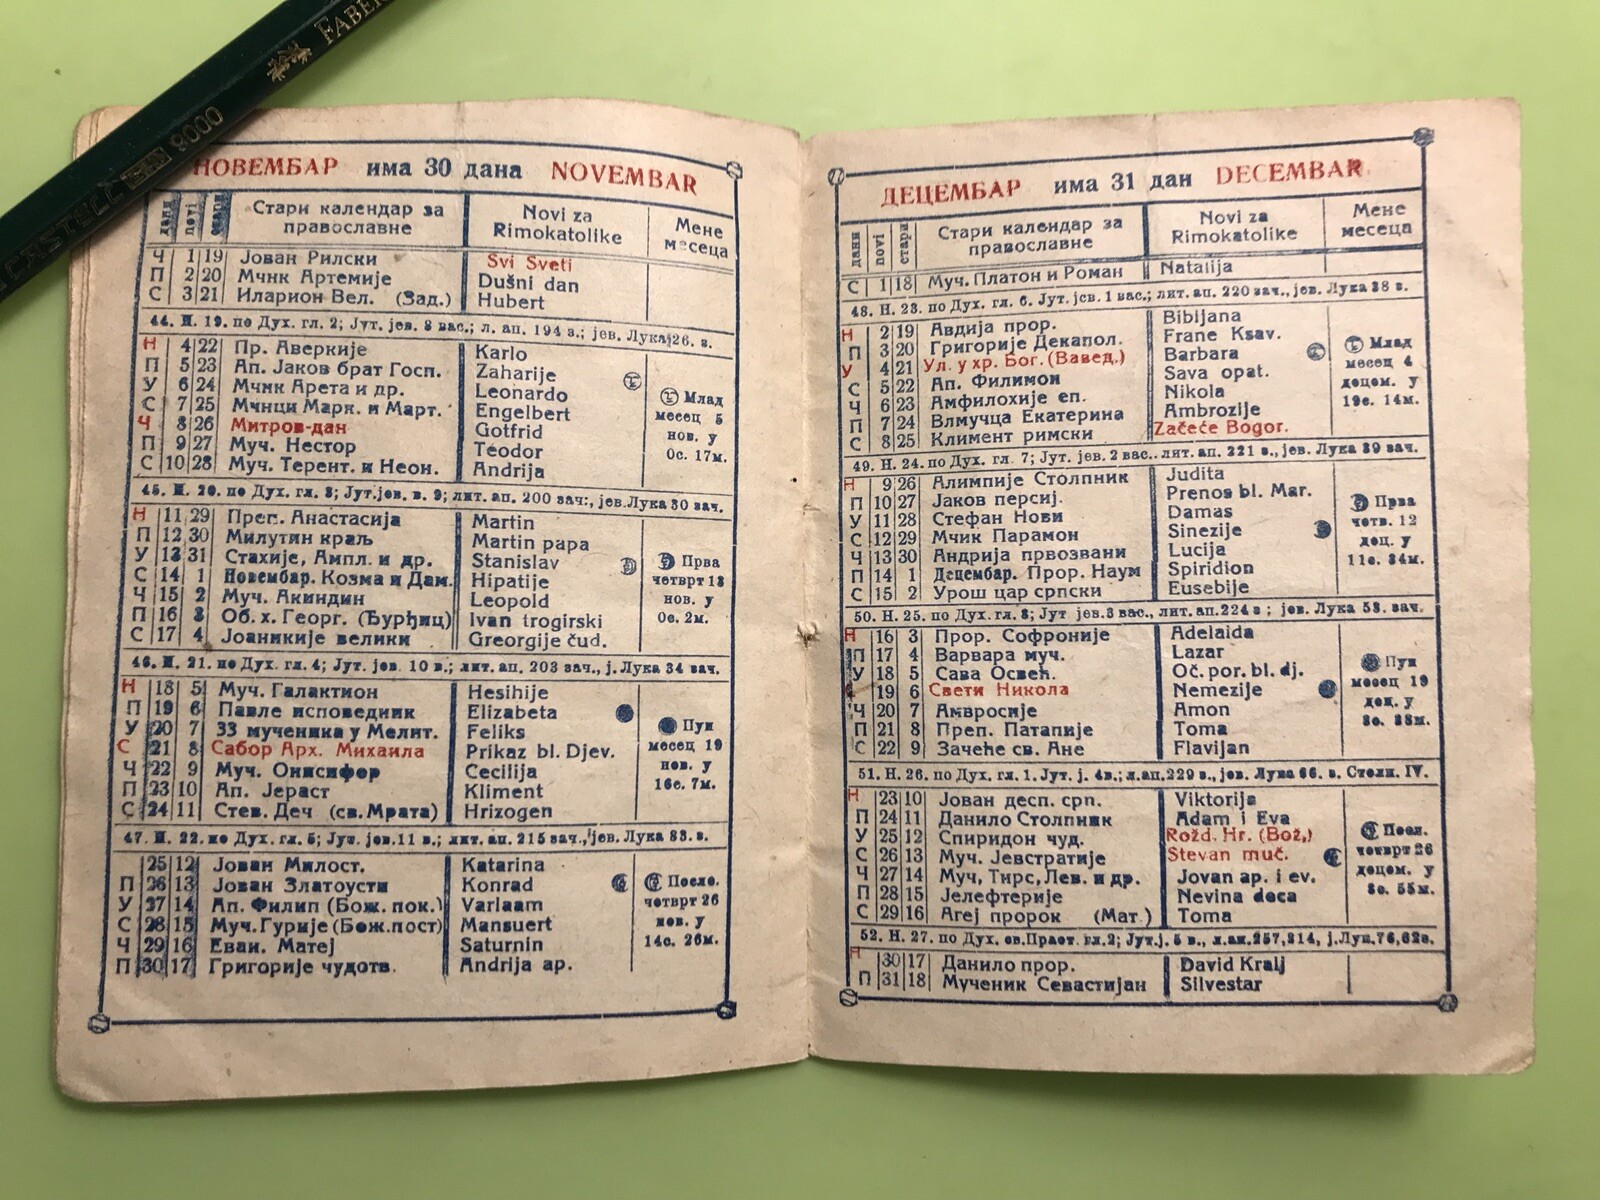 FABER
CASTELL 9000
НОВЕМБАР има 30 дана NOVEMBAR
дани novi стари Стари календар за православне Novi za Rimokatolike Мене месеца
Ч 1 19 Јован Рилски Svi Sveti
П 2 20 Мчнк Артемије Dušni dan
С 3 21 Иларион Вел. (Зад.) Hubert
44. Н. 19. по Дух. гл. 2; Јут. јев. 8 вас.; л. ап. 194 з.; јев. Лука 26. з.
Н 4 22 Пр. Аверкије Karlo
П 5 23 Ап. Јаков брат Госп. Zaharije
У 6 24 Мчнк Арета и др. Leonardo
С 7 25 Мчнци Марк. и Март. Engelbert
Ч 8 26 Митров-дан Gotfrid
П 9 27 Муч. Нестор Teodor
С 10 28 Муч. Терент. и Неон. Andrija
Млад
месец 5
нов. у
0с. 17м.
45. Н. 20. по Дух. гл. 3; Јут.јев. в. 9; лит. ап. 200 зач., јев.Лука 30 зач.
Н 11 29 Преп. Анастасија Martin
П 12 30 Милутин краљ Martin papa
У 13 31 Стахије, Ампл. и др. Stanislav
С 14 1 Новембар. Козма и Дам. Hipatije
Ч 15 2 Муч. Акиндин Leopold
П 16 3 Об. х. Георг. (Ђурђиц) Ivan trogirski
С 17 4 Јоаникије велики Greorgije čud.
Прва
четврт 13
нов. у
0с. 2м.
46. Н. 21. по Дух. гл. 4; Јут. јев. 10 в.; лит. ап. 203 зач., ј. Лука 34 зач.
Н 18 5 Муч. Галактион Hesihije
П 19 6 Павле исповедник Elizabeta
У 20 7 33 мученика у Мелит. Feliks
С 21 8 Сабор Арх. Михаила Prikaz bl. Djev.
Ч 22 9 Муч. Онисифор Cecilija
П 23 10 Ап. Јераст Kliment
С 24 11 Стев. Деч (св. Мрата) Hrizogen
Пун
месец 19
нов. у
16с. 7м.
47. Н. 22. по Дух. гл. 5; Јут. јев. 11 в.; лит. ап. 215 зач., јев. Лука 83. з.
25 12 Јован Милост. Katarina
П 26 13 Јован Златоусти Konrad
У 27 14 Ап. Филип (Бож. пок.) Varlaam
С 28 15 Муч. Гурије (Бож.пост) Mansuert
Ч 29 16 Еван. Матеј Saturnin
П 30 17 Григорије чудотв. Andrija ap.
После.
четврт 26
нов. у
14с. 26м.
ДЕЦЕМБАР има 31 дан DECEMBAR
дани novi стари Стари календар за православне Novi za Rimokatolike Мене месеца
С 1 18 Муч. Платон и Роман Natalija
48. Н. 23. по Дух. гл. 6. Јут. јев. 1 вас.; лит. ап. 220 зач., јев. Лука 38 з.
Н 2 19 Авдија прор. Bibijana
П 3 20 Григорије Декапол. Frane Ksav.
У 4 21 Ул. у хр. Бог. (Вавед.) Barbara
С 5 22 Ап. Филимон Sava opat.
Ч 6 23 Амфилохије еп. Nikola
П 7 24 Влмучца Екатерина Ambrozije
С 8 25 Климент римски Začeće Bogor.
Млад
месец 4
децем. у
19с. 14м.
49. Н. 24. по Дух. гл. 7; Јут. јев. 2 вас.. лит. ап. 221 з., јев. Лука 39 зач.
Н 9 26 Алимпије Столпник Judita
П 10 27 Јаков персиј. Prenos bl. Mar.
У 11 28 Стефан Нови Damas
С 12 29 Мчик Парамон Sinezije
Ч 13 30 Андрија првозвани Lucija
П 14 1 Децембар. Прор. Наум Spiridion
С 15 2 Урош цар српски Eusebije
Прва
четв. 12
дец. у
11с. 34м.
50. Н. 25. по Дух. гл. 8; Јут јев.3 вас., лит. ап.224 з ; јев. Лука 53. зач.
Н 16 3 Прор. Софроније Adelaida
П 17 4 Варвара муч. Lazar
У 18 5 Сава Освећ. Oč. por. bl. dj.
19 6 Свети Никола Nemezije
Ч 20 7 Амвросије Amon
П 21 8 Преп. Патапије Toma
С 22 9 Зачеће св. Ане Flavijan
Пун
месец 19
дец. у
8с. 38м.
51. Н. 26. по Дух. гл. 1. Јут. ј. 4в.; л.ап.229 з., јев. Лука 66. з. Степн. IV.
Н 23 10 Јован десп. срп. Viktorija
П 24 11 Данило Столпник Adam i Eva
У 25 12 Спиридон чуд. Rožd. Hr. (Bož,)
С 26 13 Муч. Јевстратије Stevan muč.
Ч 27 14 Муч, Тирс, Лев. и др. Jovan ap. i ev.
П 28 15 Јелефтерије Nevina deca
С 29 16 Агеј пророк (Мат.) Toma
Посл.
четврт 26
децем. у
8с. 55м.
52. Н. 27. по Дух. св.Праот. гл.2; Јут.ј. 5 в., л.ап.257,314,
Н 30 17 Данило прор. David Kralj
П 31 18 Мученик Севастијан Silvestar